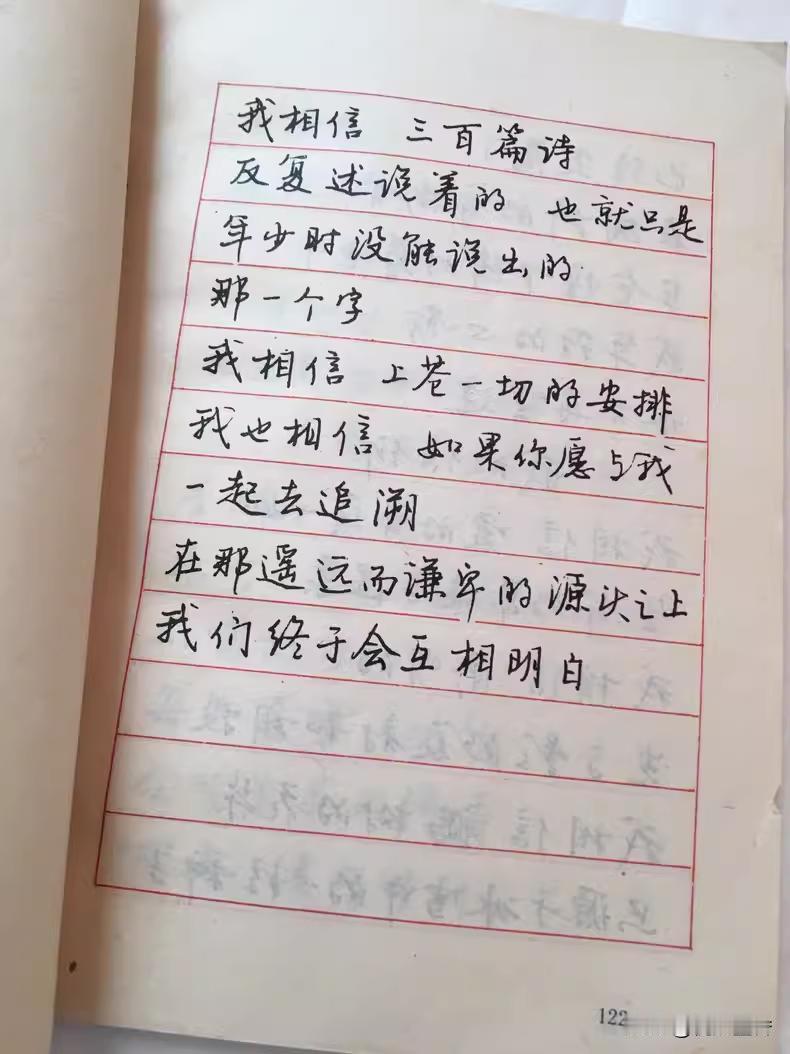 我相信 三百篇诗
反复述说着的 也就只是
年少时没能说出的
那一个字
我相信 上苍一切的安排
我也相信 如果你愿与我
一起去追溯
在那遥远而谦卑的源头之上
我们终于会互相明白
122